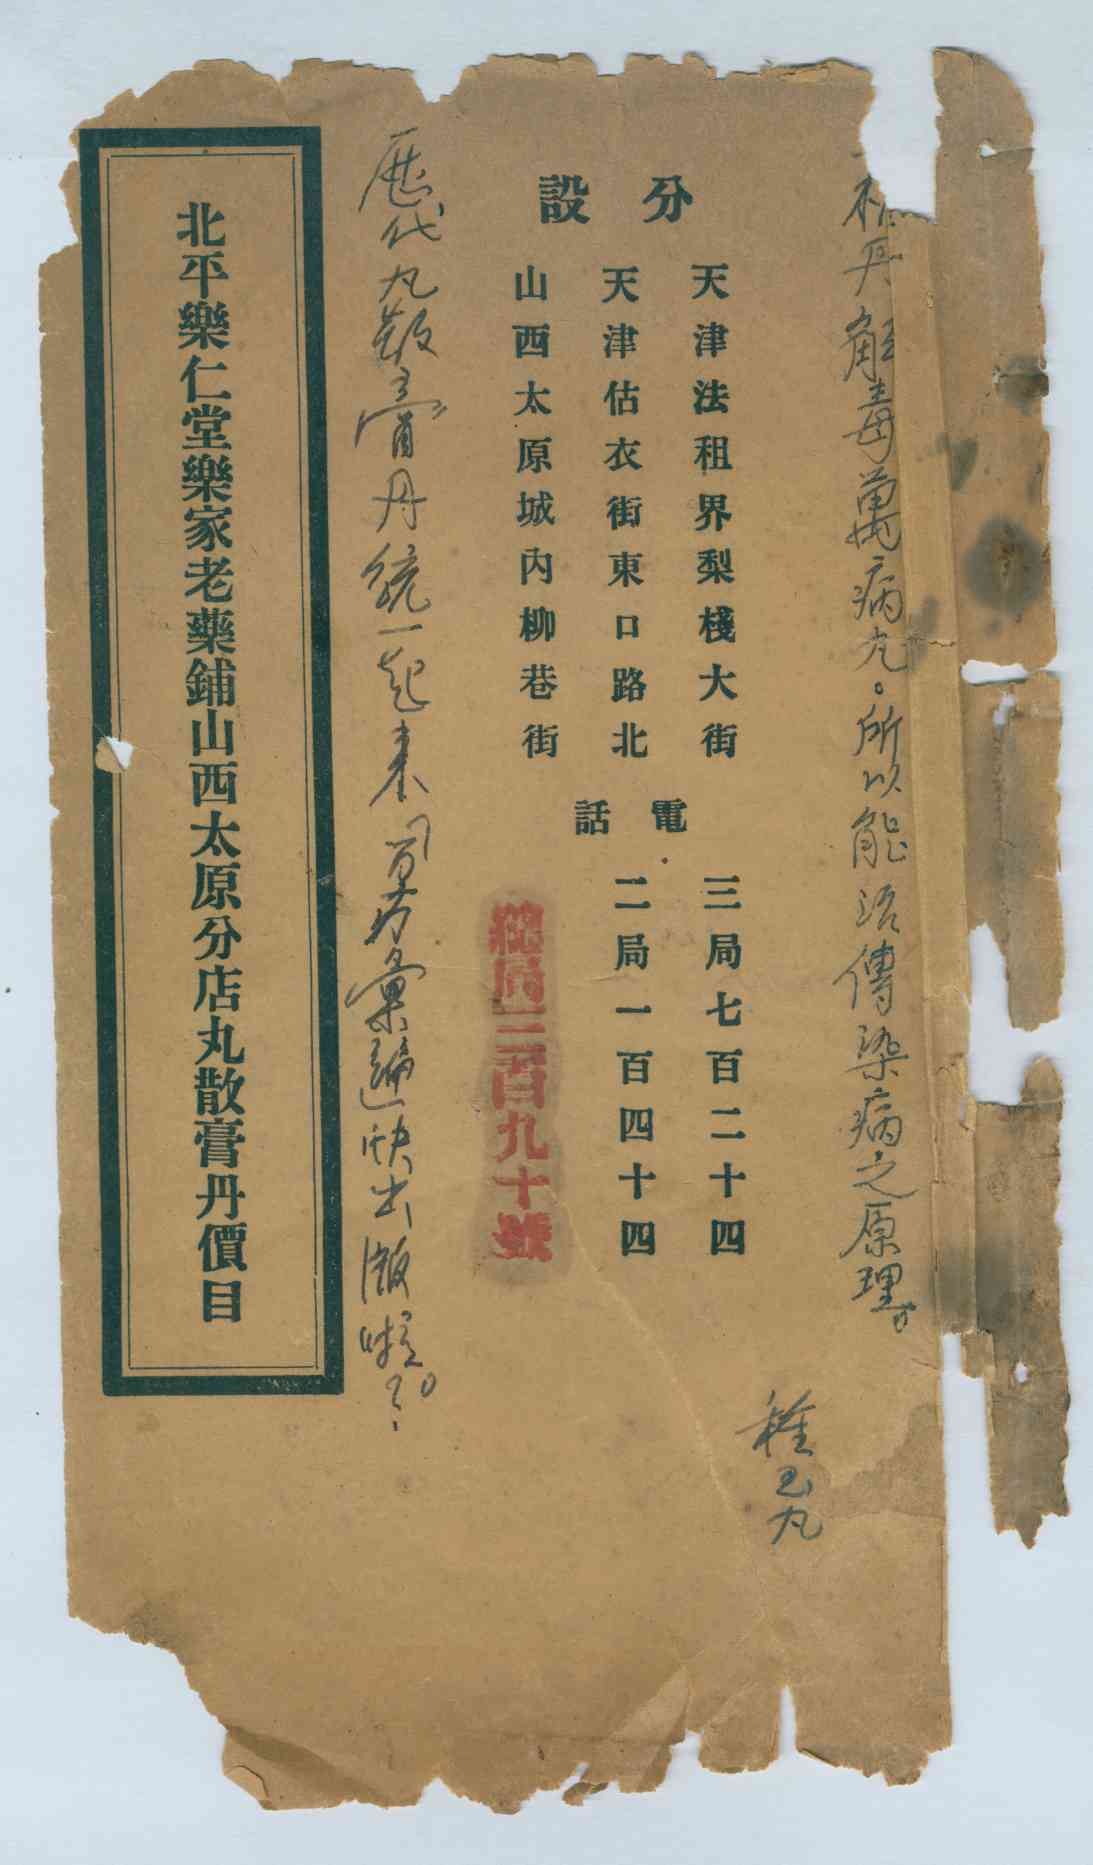 丹解毒萬病丸。所以能治傳染病之原理。
種玉丸
分設
天津法租界梨棧大街
天津估衣街東口路北
山西太原城內柳巷街
電話
三局七百二十四
二局一百四十四
總局三百九十號
歷代丸散膏丹統一起來
快出版啦
北平樂仁堂樂家老藥鋪山西太原分店丸散膏丹價目